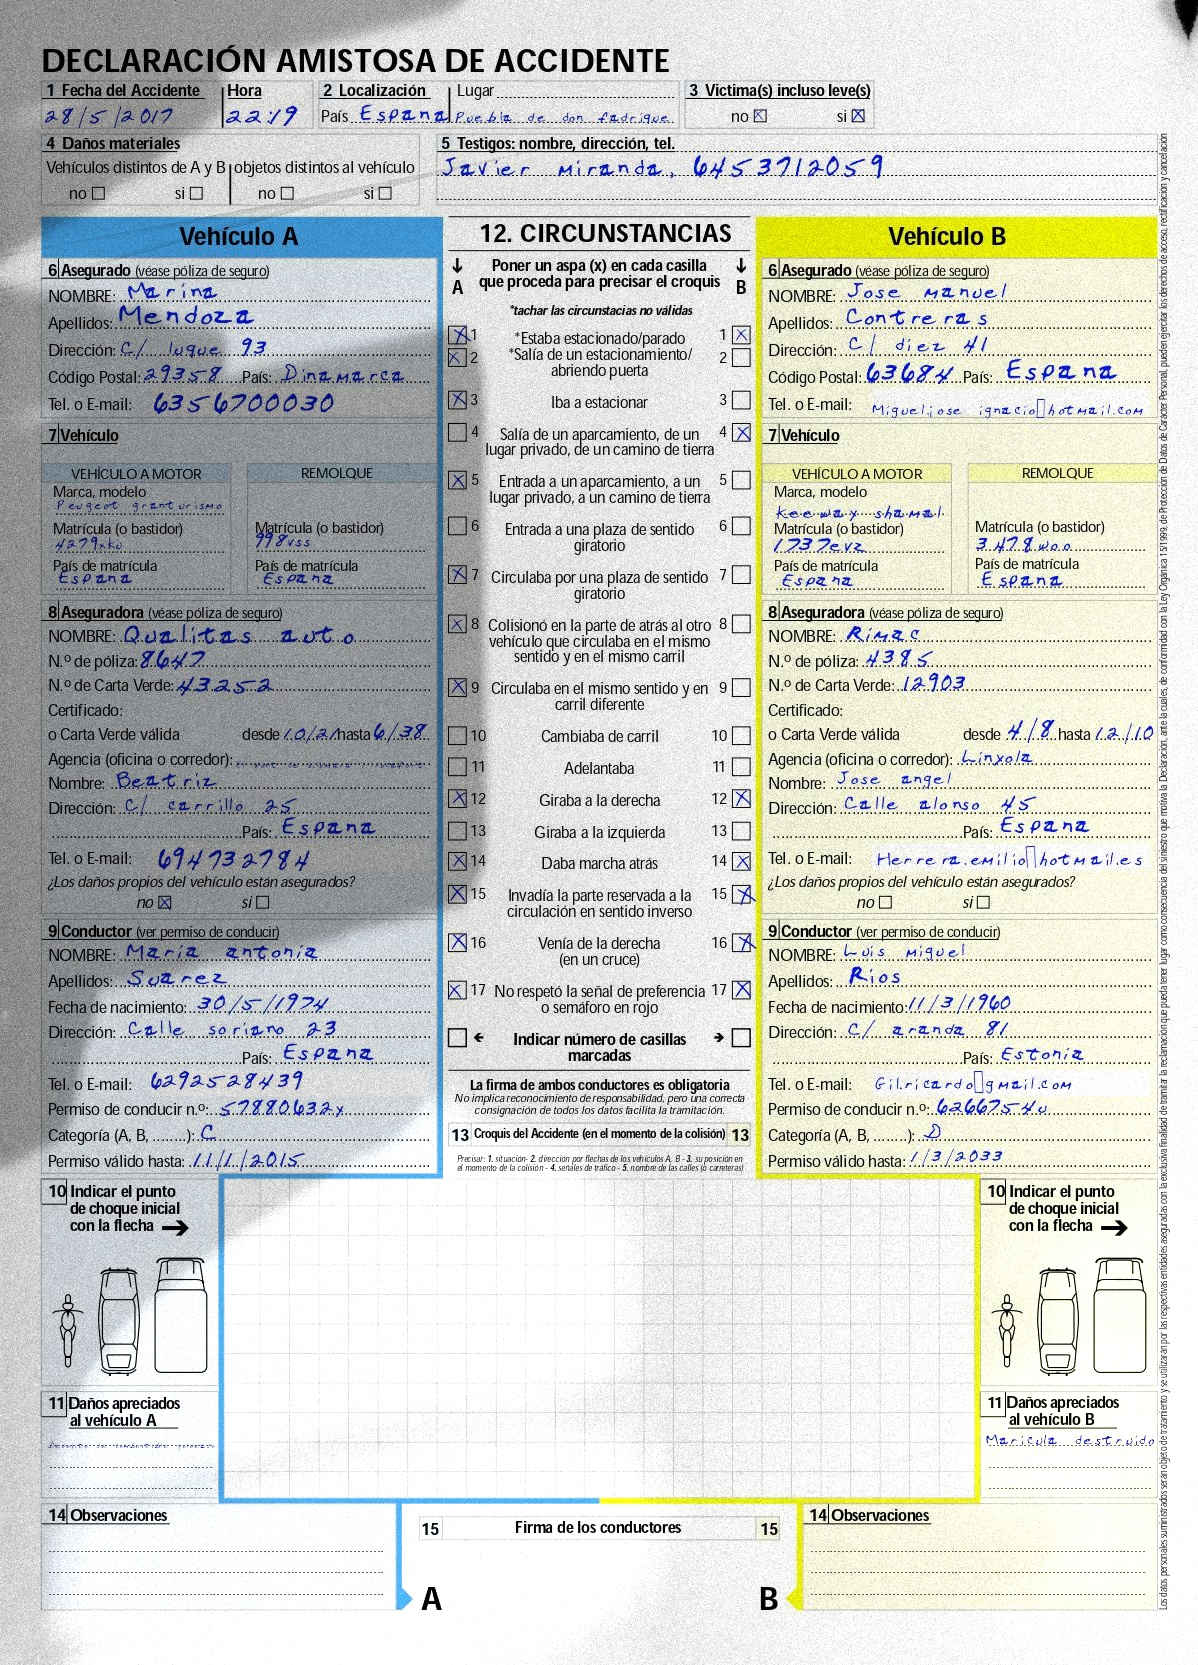 DECLARACIÓN AMISTOSA DE ACCIDENTE
1 Fecha del Accidente Hora 2 Localización Lugar 3 Victima(s) incluso leve(s)
28/5/2017 22:19 País Espana Puebla de don fadrique no ☒ si ☒
4 Daños materiales 5 Testigos: nombre, dirección, tel.
Vehículos distintos de A y B objetos distintos al vehículo Javier Miranda, 6453712059
no ☐ si ☐ no ☐ si ☐
Vehículo A
6 Asegurado (véase póliza de seguro)
NOMBRE: Marina
Apellidos: Mendoza
Dirección: C/ luque 93
Código Postal: 29358 País: Dinamarca
Tel. o E-mail: 6356700030
7 Vehículo
VEHÍCULO A MOTOR REMOLQUE
Marca, modelo
Peugeot granturismo
Matrícula (o bastidor) Matrícula (o bastidor)
4279xku 998vss
País de matrícula País de matrícula
Espana Espana
8 Aseguradora (véase póliza de seguro)
NOMBRE: Qualitas auto
N.º de póliza: 8647
N.º de Carta Verde: 43252
Certificado:
o Carta Verde válida desde 10/21 hasta 6/38
Agencia (oficina o corredor):
Nombre: Beatriz
Dirección: C/ carrillo 25
País: Espana
Tel. o E-mail: 694732784
¿Los daños propios del vehículo están asegurados?
no ☒ si ☐
9 Conductor (ver permiso de conducir)
NOMBRE: María antonia
Apellidos: Suarez
Fecha de nacimiento: 30/5/1974
Dirección: Calle soriano 23
País: Espana
Tel. o E-mail: 6292528439
Permiso de conducir n.º: 57880632x
Categoría (A, B, ........): C
Permiso válido hasta: 11/1/2015
10 Indicar el punto
de choque inicial
con la flecha →
11 Daños apreciados
al vehículo A
14 Observaciones
12. CIRCUNSTANCIAS
↓ Poner un aspa (x) en cada casilla ↓
A que proceda para precisar el croquis B
*tachar las circunstacias no válidas
☒ 1 *Estaba estacionado/parado 1 ☒
☒ 2 *Salía de un estacionamiento/ 2 ☐
abriendo puerta
☒ 3 Iba a estacionar 3 ☐
☐ 4 Salía de un aparcamiento, de un 4 ☒
lugar privado, de un camino de tierra
☒ 5 Entrada a un aparcamiento, a un 5 ☐
lugar privado, a un camino de tierra
☐ 6 Entrada a una plaza de sentido 6 ☐
giratorio
☒ 7 Circulaba por una plaza de sentido 7 ☐
giratorio
☒ 8 Colisionó en la parte de atrás al otro 8 ☐
vehículo que circulaba en el mismo
sentido y en el mismo carril
☒ 9 Circulaba en el mismo sentido y en 9 ☐
carril diferente
☐ 10 Cambiaba de carril 10 ☐
☐ 11 Adelantaba 11 ☐
☒ 12 Giraba a la derecha 12 ☒
☐ 13 Giraba a la izquierda 13 ☐
☒ 14 Daba marcha atrás 14 ☒
☒ 15 Invadía la parte reservada a la 15 ☒
circulación en sentido inverso
☒ 16 Venía de la derecha 16 ☒
(en un cruce)
☒ 17 No respetó la señal de preferencia 17 ☒
o semáforo en rojo
☐ ← Indicar número de casillas → ☐
marcadas
La firma de ambos conductores es obligatoria
No implica reconocimiento de responsabilidad, pero una correcta
consignación de todos los datos facilita la tramitación.
13 Croquis del Accidente (en el momento de la colisión) 13
Precisar: 1. situación- 2. dirección por flechas de los vehículos A, B - 3. su posición en
el momento de la colisión - 4. señales de tráfico - 5. nombre de las calles (o carreteras)
15 Firma de los conductores 15
A B
Vehículo B
6 Asegurado (véase póliza de seguro)
NOMBRE: Jose manuel
Apellidos: Contreras
Dirección: C/ diez 41
Código Postal: 63684 País: Espana
Tel. o E-mail: Migueljose ignacio▯hotmail.com
7 Vehículo
VEHÍCULO A MOTOR REMOLQUE
Marca, modelo
keeway shamal
Matrícula (o bastidor) Matrícula (o bastidor)
1737evz 3478woo
País de matrícula País de matrícula
Espana Espana
8 Aseguradora (véase póliza de seguro)
NOMBRE: Rimac
N.º de póliza: 4385
N.º de Carta Verde: 12903
Certificado:
o Carta Verde válida desde 4/8 hasta 12/10
Agencia (oficina o corredor): Linxola
Nombre: Jose angel
Dirección: Calle alonso 45
País: Espana
Tel. o E-mail: Herrera.emilio▯hotmail.es
¿Los daños propios del vehículo están asegurados?
no ☐ si ☐
9 Conductor (ver permiso de conducir)
NOMBRE: Luis miguel
Apellidos: Rios
Fecha de nacimiento: 11/3/1960
Dirección: C/ aranda 81
País: Estonia
Tel. o E-mail: Gilricardo▯gmail.com
Permiso de conducir n.º: 62667540
Categoría (A, B, ........): D
Permiso válido hasta: 1/3/2033
10 Indicar el punto
de choque inicial
con la flecha →
11 Daños apreciados
al vehículo B
Maricula destruido
14 Observaciones
Los datos personales suministrados seran objeto de tratamiento y se utilizaran por las respectivas entidades aseguradas con la exclusiva finalidad de tramitar la reclamación que pueda tener lugar como consecuencia del siniestro que motiva la Declaración, ante la cuales, de conformidad con la Ley Orgánica 15/1999, de Protección de Datos de Carácter Personal, pueden ejercitar los derechos de acceso, rectificación y cancelación